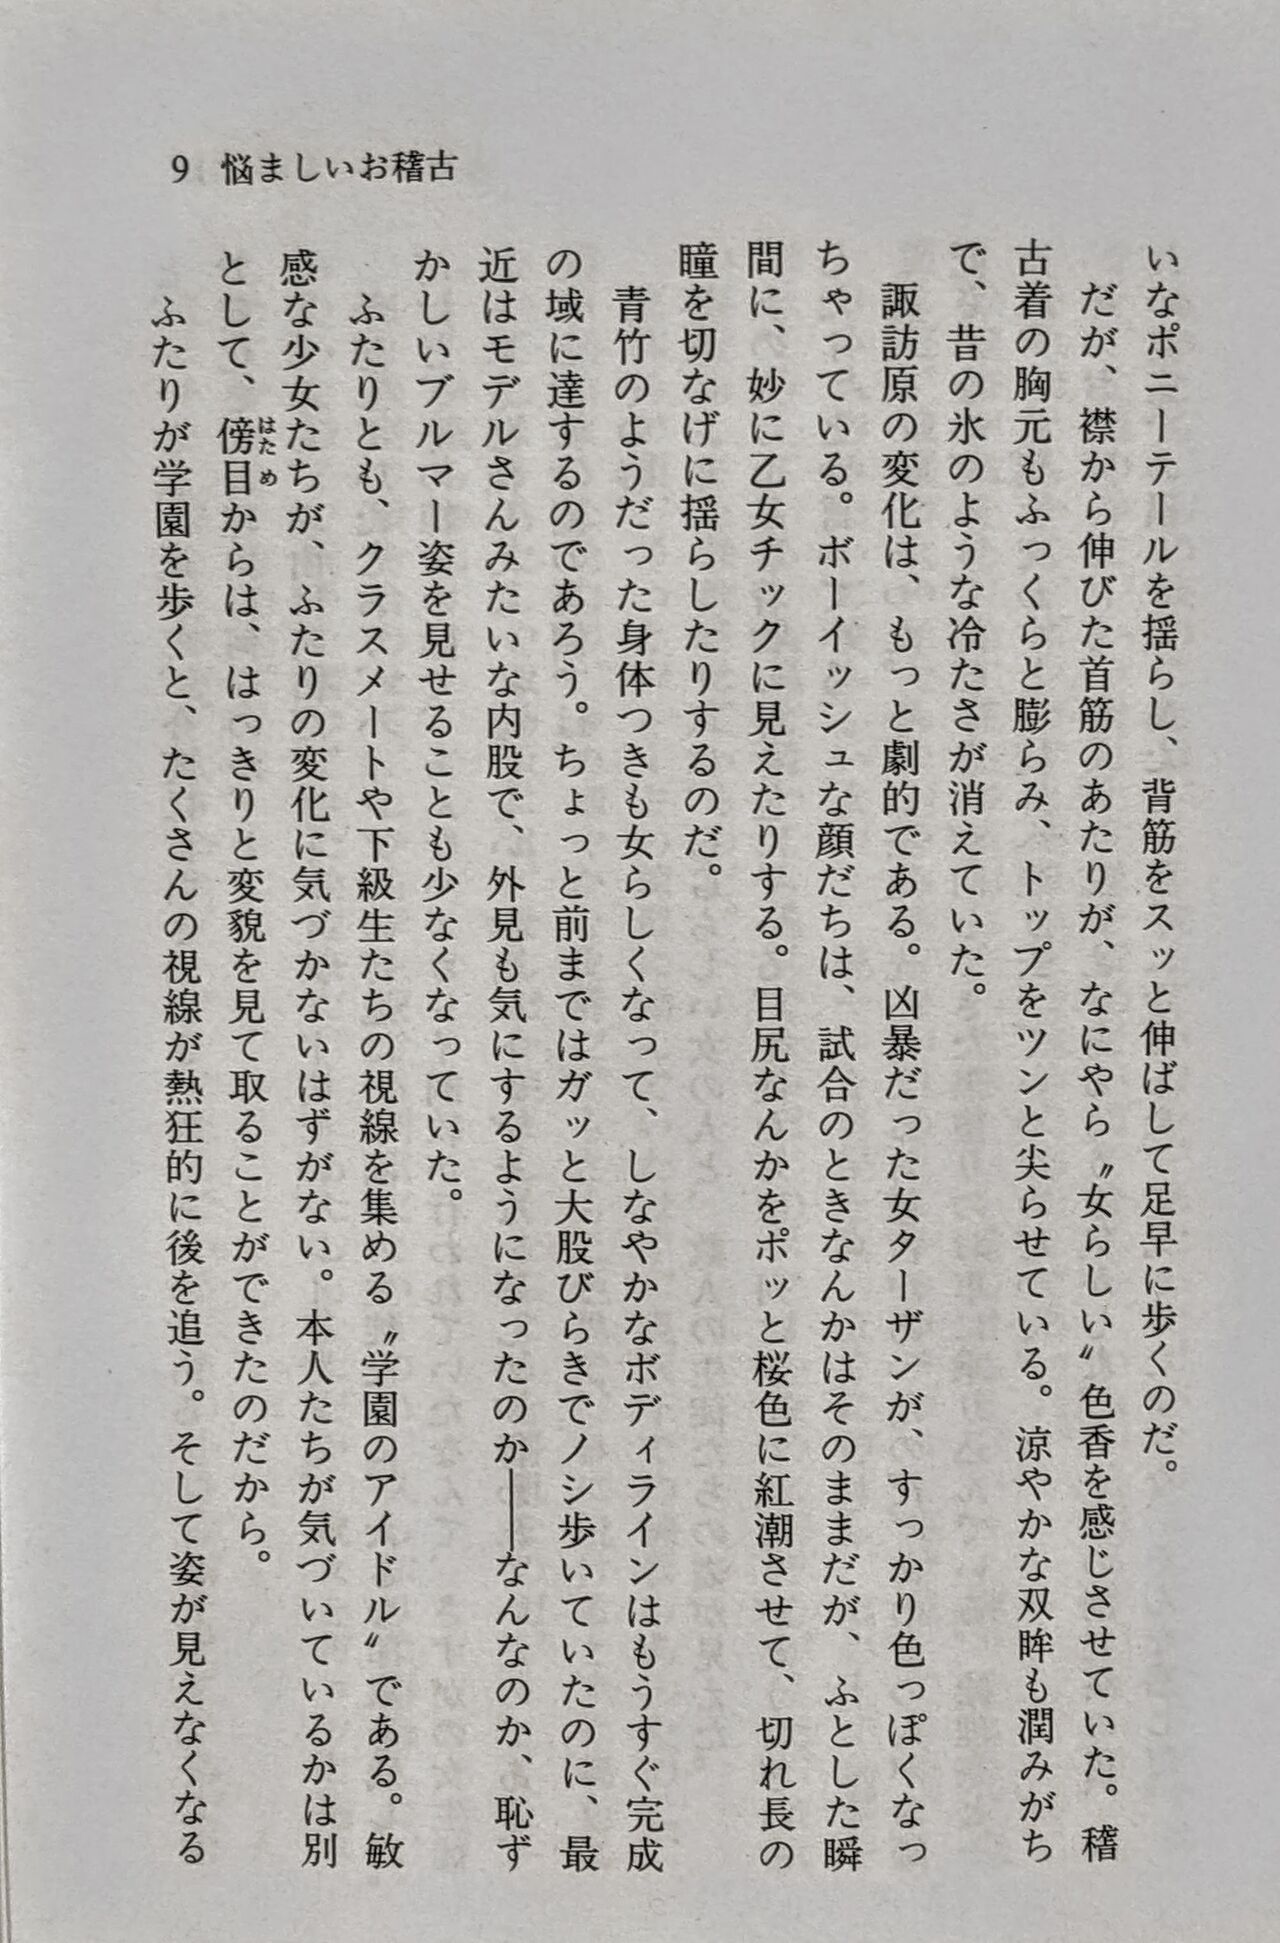 9 悩ましいお稽古
いなポニーテールを揺らし、背筋をスッと伸ばして足早に歩くのだ。
だが、襟から伸びた首筋のあたりが、なにやら〝女らしい〟色香を感じさせていた。稽
古着の胸元もふっくらと膨らみ、トップをツンと尖らせている。涼やかな双眸も潤みがち
で、昔の氷のような冷たさが消えていた。
諏訪原の変化は、もっと劇的である。凶暴だった女ターザンが、すっかり色っぽくなっ
ちゃっている。ボーイッシュな顔だちは、試合のときなんかはそのままだが、ふとした瞬
間に、妙に乙女チックに見えたりする。目尻なんかをポッと桜色に紅潮させて、切れ長の
瞳を切なげに揺らしたりするのだ。
青竹のようだった身体つきも女らしくなって、しなやかなボディラインはもうすぐ完成
の域に達するのであろう。ちょっと前まではガッと大股びらきでノシ歩いていたのに、最
近はモデルさんみたいな内股で、外見も気にするようになったのか――なんなのか、恥ず
かしいブルマー姿を見せることも少なくなっていた。
ふたりとも、クラスメートや下級生たちの視線を集める〝学園のアイドル〟である。敏
感な少女たちが、ふたりの変化に気づかないはずがない。本人たちが気づいているかは別
として、傍目からは、はっきりと変貌を見て取ることができたのだから。
はため
ふたりが学園を歩くと、たくさんの視線が熱狂的に後を追う。そして姿が見えなくなる